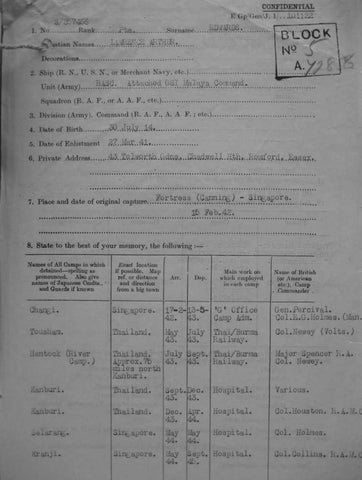 CONFIDENTIAL
1. No Rank Pte. Surname EDWARDS.
Christian Names LAWRENCE ARTHUR.
Decorations.
BLOCK
No 5
A.
2. Ship (R. N., U. S. N., or Merchant Navy, etc.)
Unit (Army) RASC. Attached GS7 Malaya Command.
Squadron (R. A. F., or A. A. F., etc.)
3. Division (Army). Command (R. A. F., A. A. F.; etc.)
4. Date of Birth 30 July 14.
5. Date of Enlistment 27 Mar 41.
6. Private Address 43 Tolworth Gdns. Chadwell Hth, Romford, Essex.
7. Place and date of original capture. Fortress (Canning) - Singapore.
15 Feb.42.
8. State to the best of your memory, the following :—
Names of All Camps in which detained—spelling as pronounced. Also give names of Japanese Comdts. and Guards if known
Exact location if possible. Map ref. or distance and direction from a big town
Arr.
Dep.
Main work on which employed in each camp
Name of British (or American etc.), Camp Commander
Changi. Singapore. 17-2- 13-5- 'G' Office Gen.Percival.
42. 43. Camp Adm. Col.E.G.Holmes.(Man.
Tousham. Thailand. May July Thai/Burma Col.Newey (Volts.)
43. 43. Railway.
Hentock (River Thailand. July Sept. Thai/Burma Major Spencer R.A.
Camp.) Approx.75 43. 43. Railway. Col. Newey.
miles north
Kanburi.
Kanburi. Thailand. Sept. Dec. Hospital. Various.
43. 43.
Kanburi. Thailand. Dec. Apr. Hospital. Col.Houston. R.A.M.C
43. 44.
Selarang. Singapore. May May Hospital. Col. Holmes.
44. 44.
Kranji. Singapore. May Sept. Hospital. Col.Collins. R.A.M.C
44.